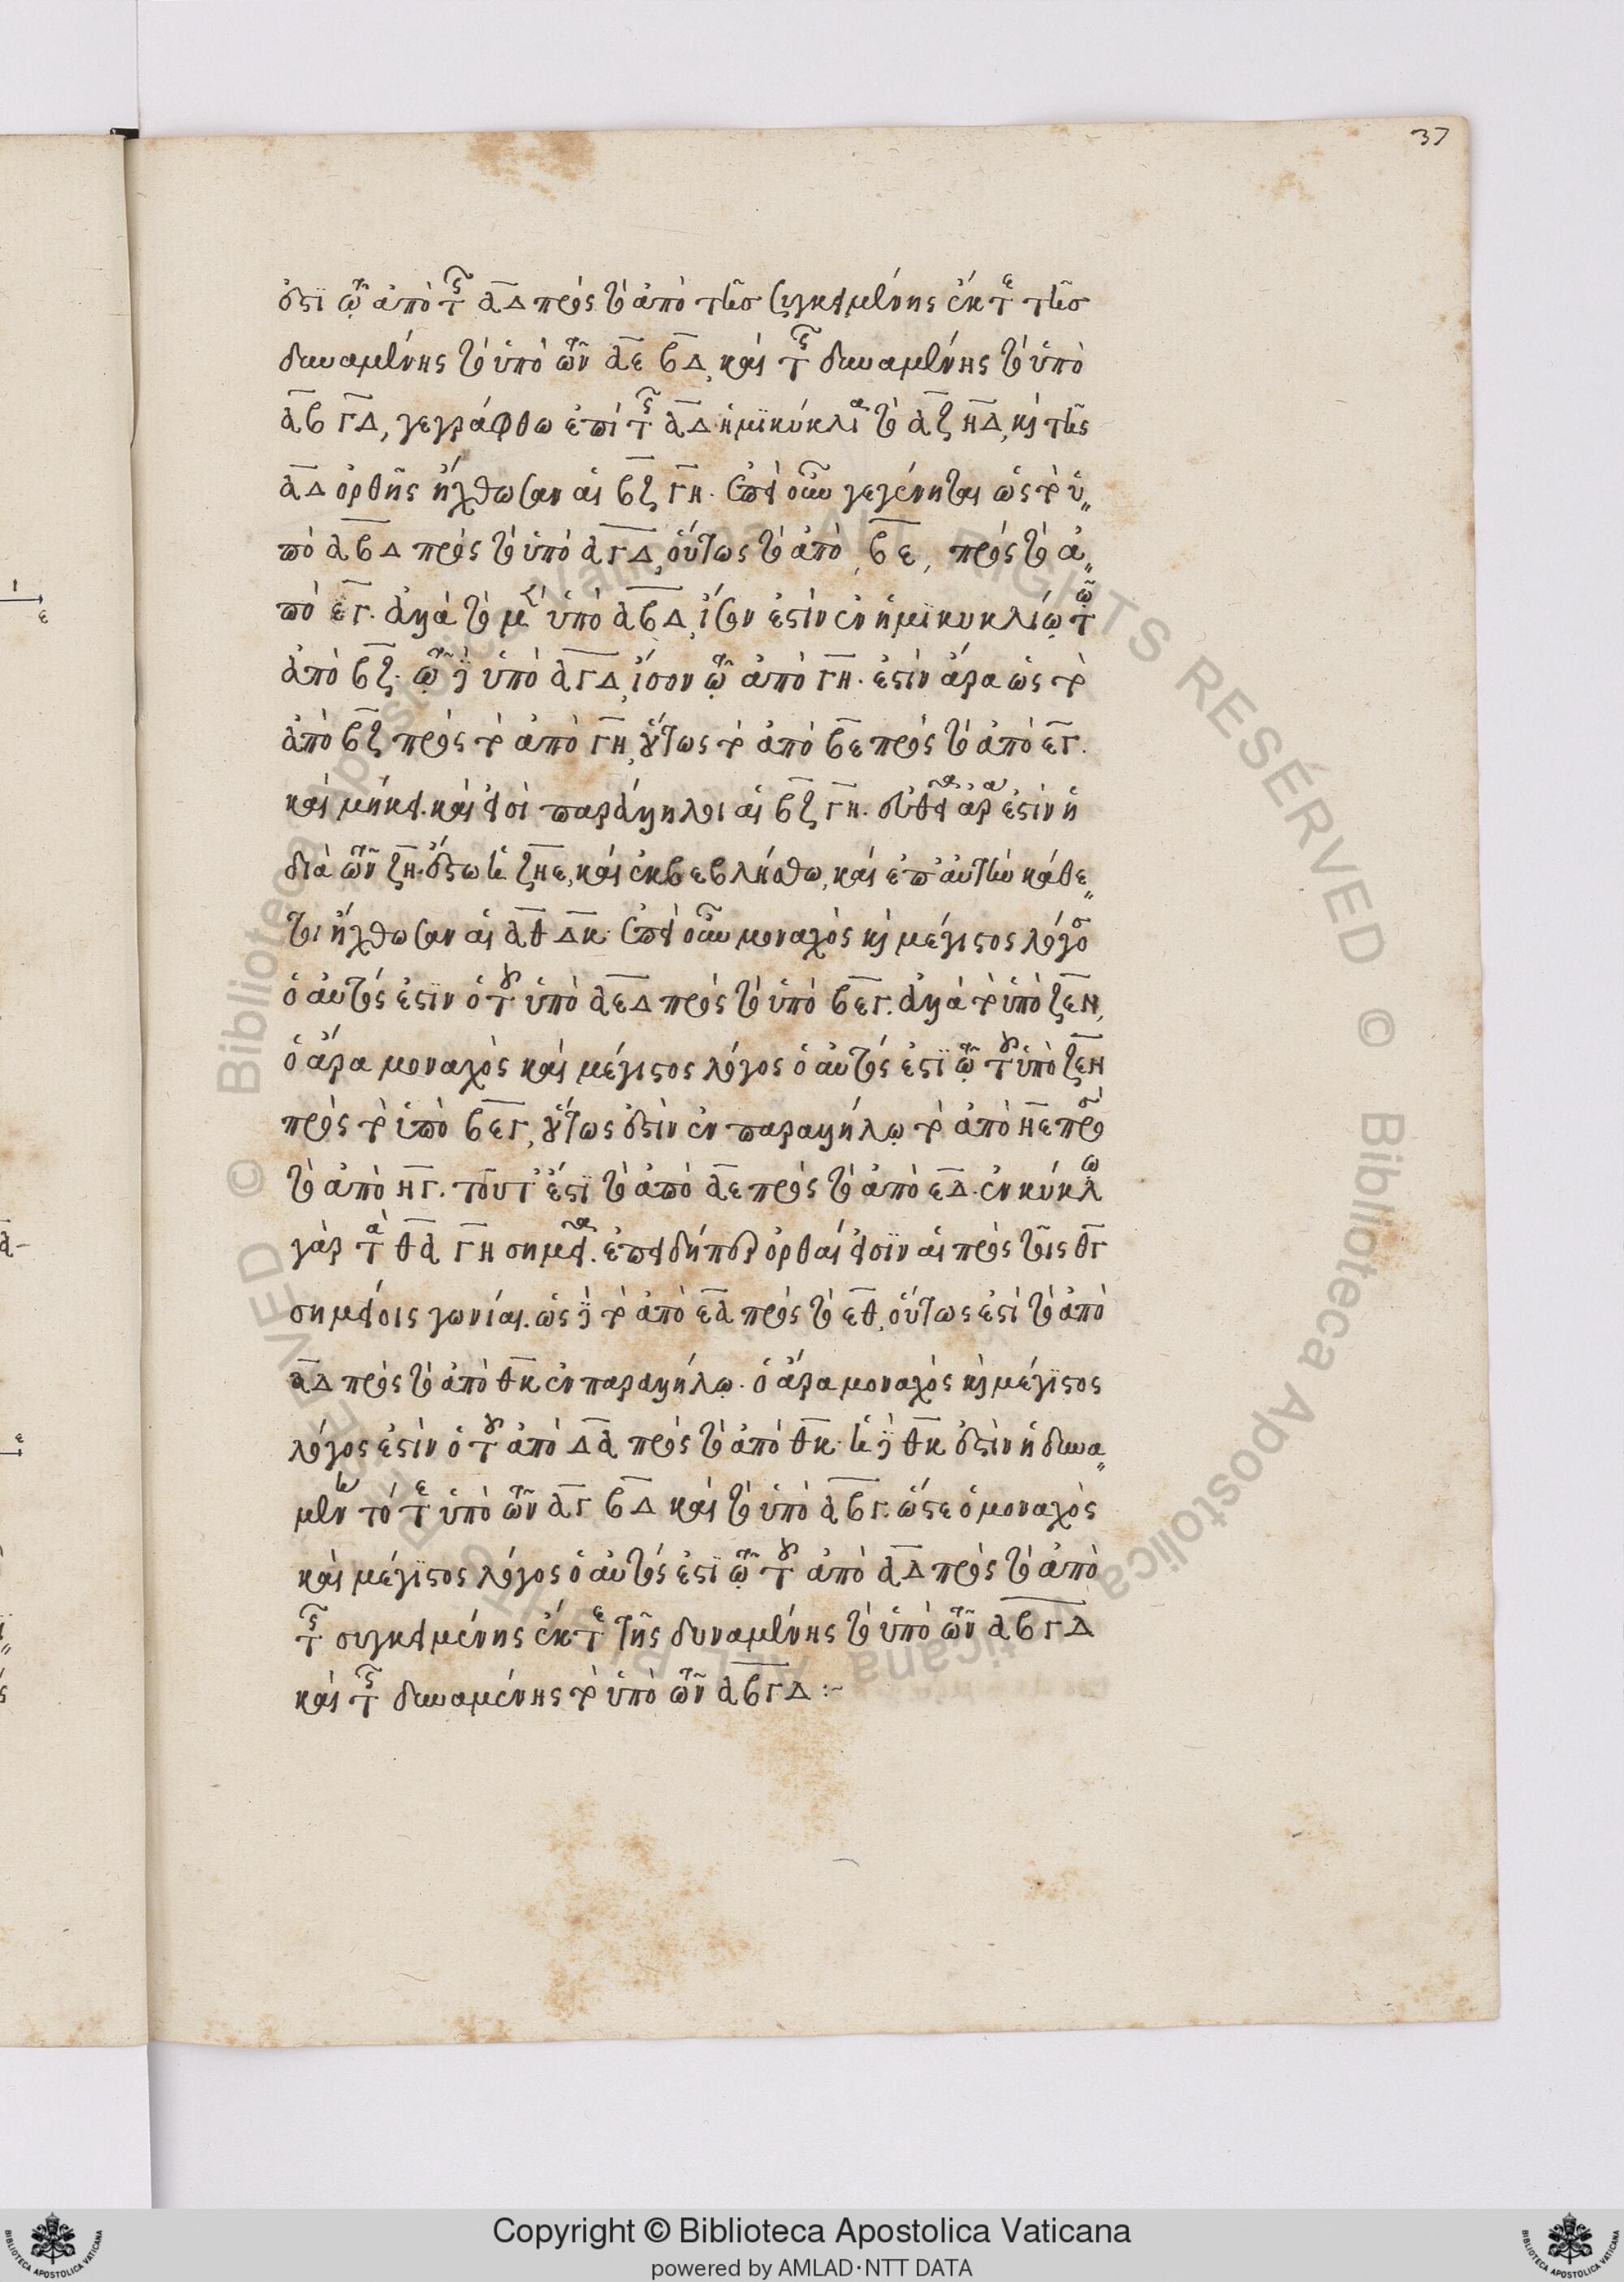 37
ἐστὶ τῷ ἀπὸ τῆς ΑΔ πρὸς τὸ ἀπὸ τῆς συγκειμένης ἔκ τε τῆς
δυναμένης τὸ ὑπὸ τῶν ΑΕ ΒΔ, καὶ τῆς δυναμένης τὸ ὑπὸ
ΑΒ ΓΔ, γεγράφθω ἐπὶ τῆς ΑΔ ἡμικύκλια τὸ ΑΖ ΗΔ, καὶ τῆς
ΑΔ ὀρθῆς ἤχθωσαν αἱ ΒΖ ΓΗ. ἐπεὶ οὖν γεγένηται ὡς τὸ ὑ„
πὸ ΑΒΔ πρὸς τὸ ὑπὸ ΑΓΔ, οὕτως τὸ ἀπὸ ΒΕ, πρὸς τὸ ἀ„
πὸ ΕΓ. ἀλλὰ τὸ μὲν ὑπὸ ΑΒΔ, ἴσον ἐστὶν ἐν ἡμικυκλίῳ τῷ
ἀπὸ ΒΖ. τῷ δὲ ὑπὸ ΑΓΔ, ἴσον τῷ ἀπὸ ΓΗ. ἐστὶν ἄρα ὡς τὸ
ἀπὸ ΒΖ πρὸς τὸ ἀπὸ ΓΗ, οὕτως τὸ ἀπὸ ΒΕ πρὸς τὸ ἀπὸ ΕΓ.
καὶ μήκει. καὶ εἰσὶ παράλληλοι αἱ ΒΖ ΓΗ. εὐθεῖα ἄρα ἐστὶν ἡ
διὰ τῶν ΖΗ. ἔστω ἡ ΖΗΕ, καὶ ἐκβεβλήσθω, καὶ ἐπ αὐτὴν κάθε„
τοι ἤχθωσαν αἱ ΑΘ ΔΚ. ἐπεὶ οὖν μοναχὸς καὶ μέγιστος λόγος
ὁ αὐτός ἐστιν ὁ τοῦ ὑπὸ ΑΕΔ πρὸς τὸ ὑπὸ ΒΕΓ. ἀλλὰ τὸ ὑπὸ ΖΕΗ,
ὁ ἄρα μοναχὸς καὶ μέγιστος λόγος ὁ αὐτός ἐστι τῷ τοῦ ὑπὸ ΖΕΗ
πρὸς τὸ ὑπὸ ΒΕΓ, οὕτως ἐστὶν ἐν παραλλήλῳ τὸ ἀπὸ ΗΕ πρὸς
τὸ ἀπὸ ΗΓ. τουτέστι τὸ ἀπὸ ΑΕ πρὸς τὸ ἀπὸ ΕΔ. ἐν κύκλῳ
γὰρ τὰ ΘΑ ΓΗ σημεῖα. ἐπειδήπερ ὀρθαί εἰσιν αἱ πρὸς τοῖς ΘΓ
σημείοις γωνίαι. ὡς δὲ τὸ ἀπὸ ΕΑ πρὸς τὸ ΕΘ, οὕτως ἐστὶ τὸ ἀπὸ
ΑΔ πρὸς τὸ ἀπὸ ΘΚ ἐν παραλλήλῳ. ὁ ἄρα μοναχὸς καὶ μέγιστος
λόγος ἐστὶν ὁ τοῦ ἀπὸ ΔΑ πρὸς τὸ ἀπὸ ΘΚ. ἡ δὲ ΘΚ ἐστὶν ἡ δυνα„
μένη τό τε ὑπὸ τῶν ΑΓ ΒΔ καὶ τὸ ὑπὸ ΑΒΓ. ὥστε ὁ μοναχὸς
καὶ μέγιστος λόγος ὁ αὐτός ἐστι τῷ τοῦ ἀπὸ ΑΔ πρὸς τὸ ἀπὸ
τῆς συγκειμένης ἔκ τε τῆς δυναμένης τὸ ὑπὸ τῶν ΑΒΓΔ
καὶ τῆς δυναμένης τὸ ὑπὸ τῶν ΑΒΓΔ :-
Copyright © Biblioteca Apostolica Vaticana
powered by AMLAD·NTT DATA